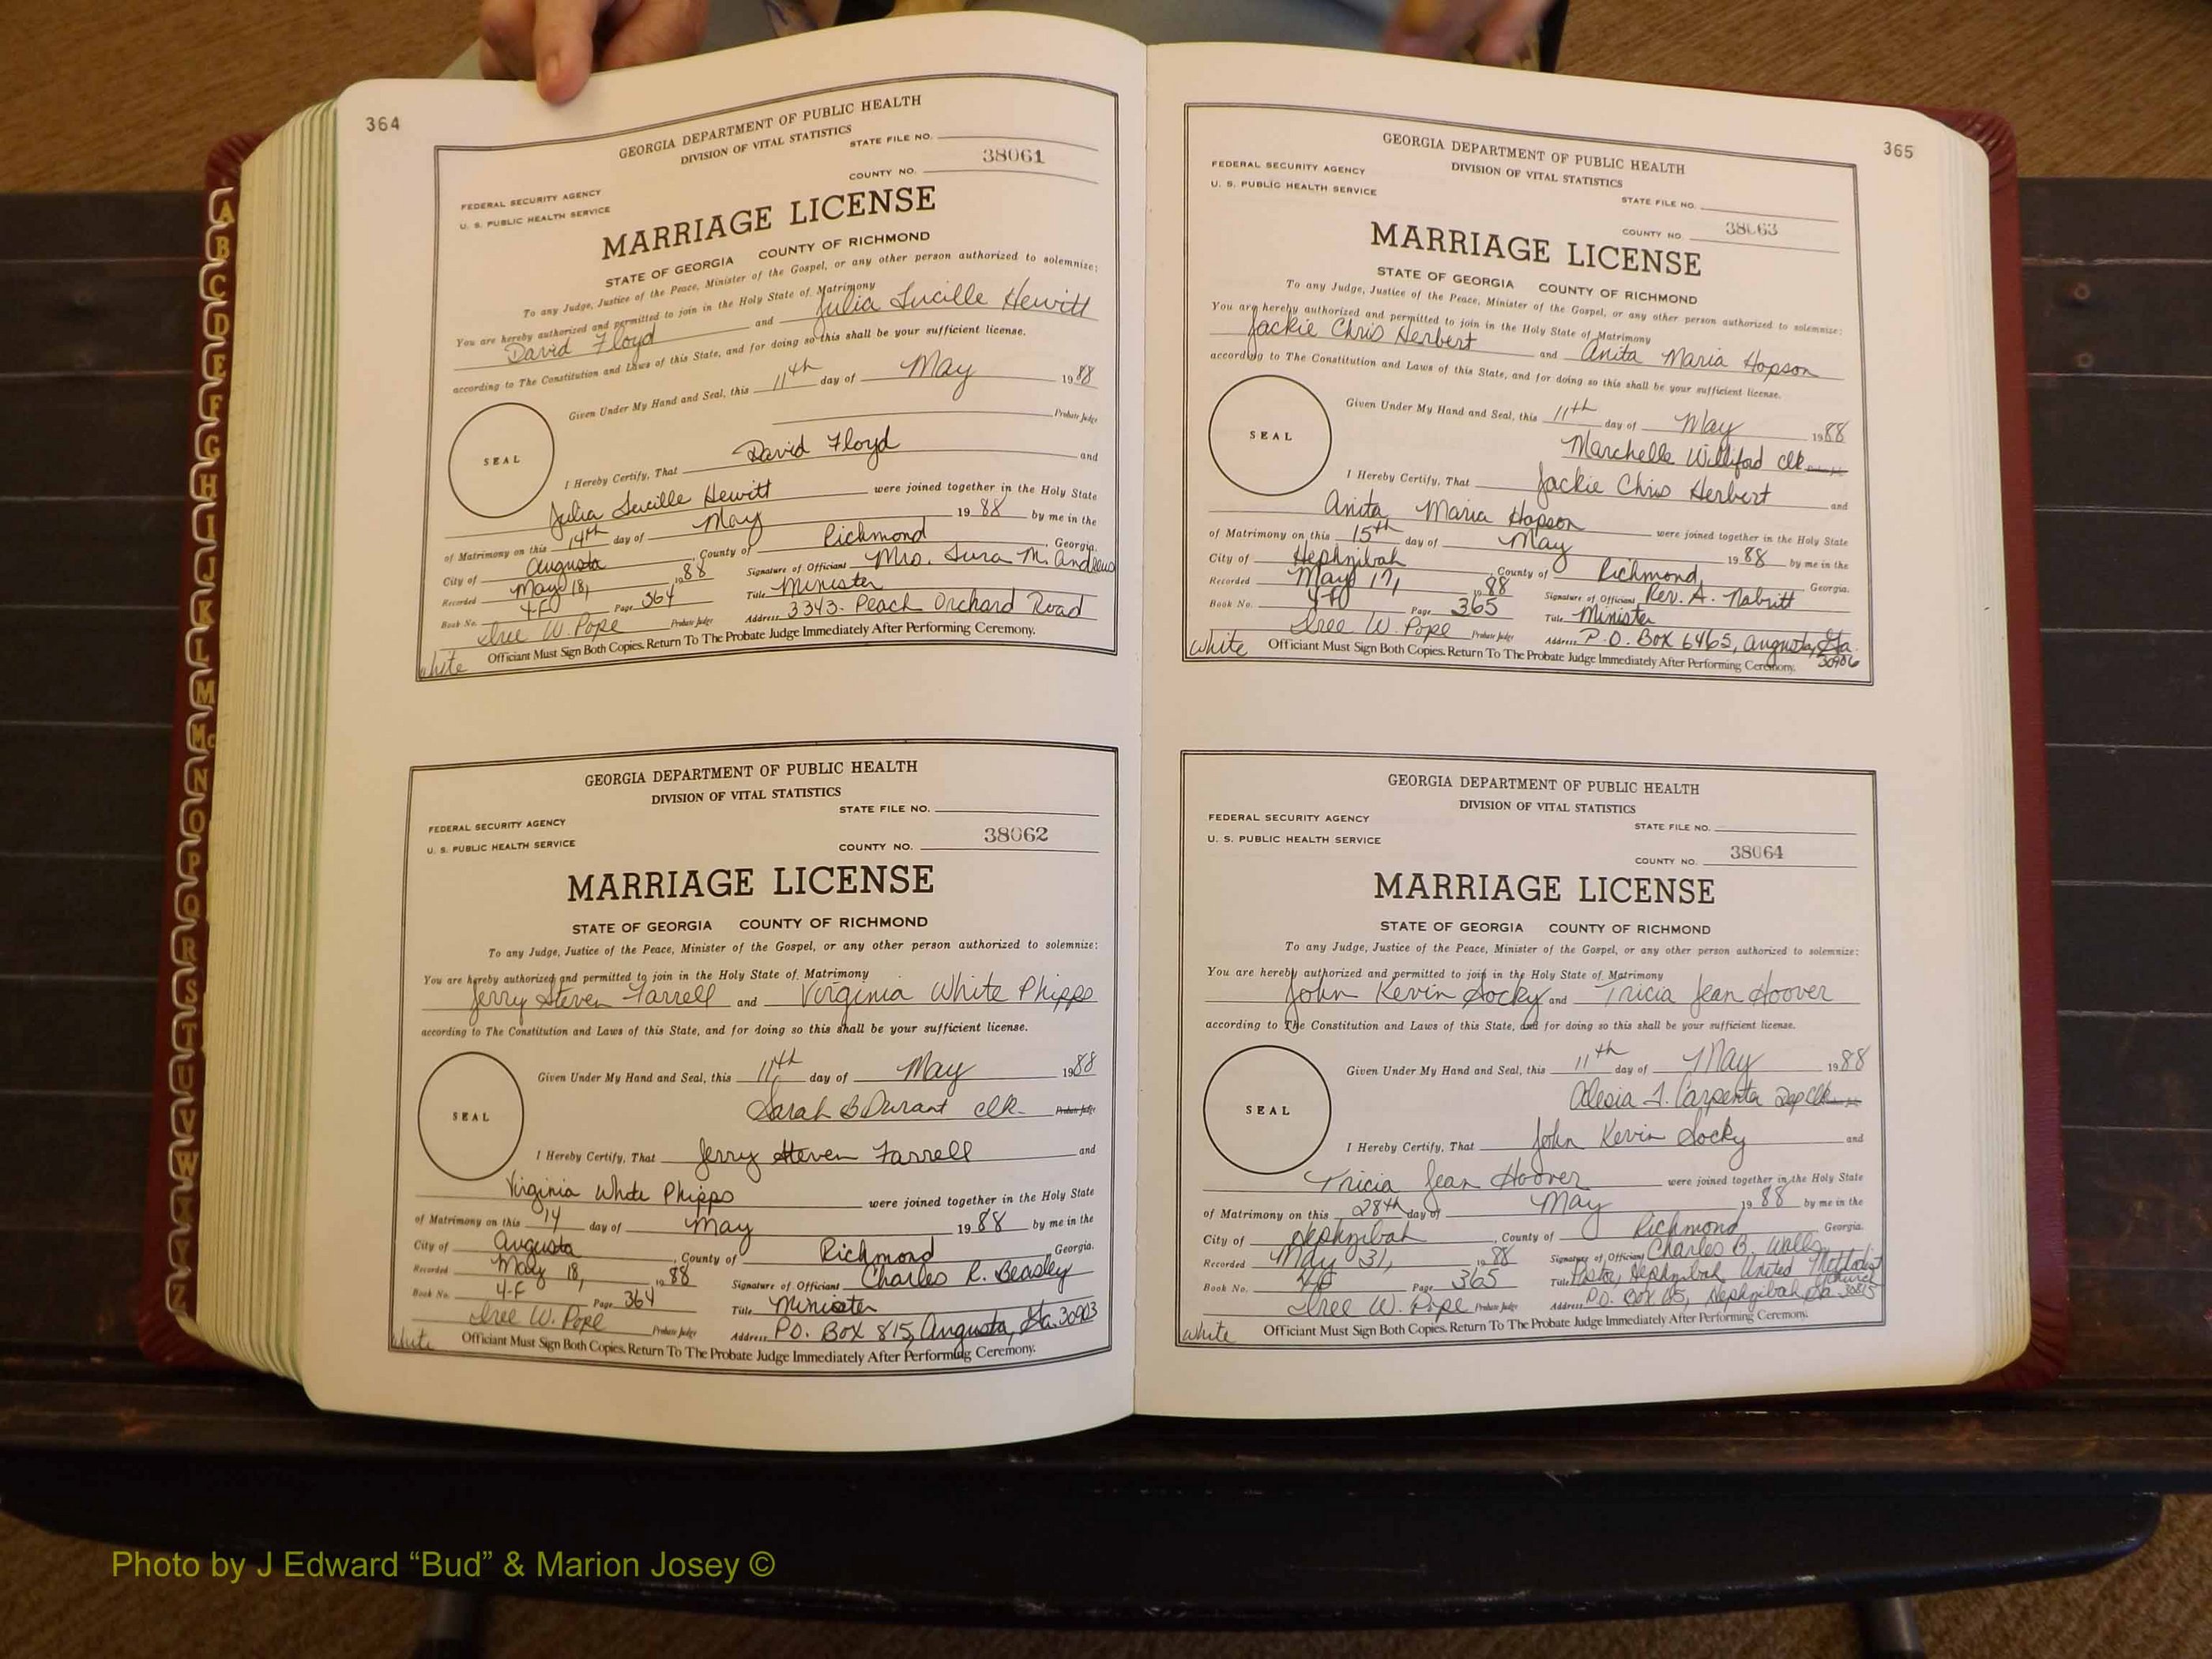 364
GEORGIA DEPARTMENT OF PUBLIC HEALTH
DIVISION OF VITAL STATISTICS
STATE FILE NO.
38061
COUNTY NO.
FEDERAL SECURITY AGENCY
U. S. PUBLIC HEALTH SERVICE
MARRIAGE LICENSE
STATE OF GEORGIA COUNTY OF RICHMOND
To any Judge, Justice of the Peace, Minister of the Gospel, or any other person authorized to solemnize:
You are hereby authorized and permitted to join in the Holy State of Matrimony
David Floyd and Julia Lucille Hewitt
according to The Constitution and Laws of this State, and for doing so this shall be your sufficient license.
Given Under My Hand and Seal, this 11th day of May 1988
Probate Judge
SEAL
I Hereby Certify, That David Floyd and
Julia Lucille Hewitt were joined together in the Holy State
of Matrimony on this 14th day of May 1988 by me in the
City of Augusta, County of Richmond, Georgia.
Recorded May 18, 1988 Signature of Officiant Mrs. M.
Book No. 4-F Page 364 Title Minister
W. Pope Probate Judge Address 3343 Peach Orchard Road
White Officiant Must Sign Both Copies. Return To The Probate Judge Immediately After Performing Ceremony.
GEORGIA DEPARTMENT OF PUBLIC HEALTH
DIVISION OF VITAL STATISTICS
STATE FILE NO.
FEDERAL SECURITY AGENCY
38062
U. S. PUBLIC HEALTH SERVICE
COUNTY NO.
MARRIAGE LICENSE
STATE OF GEORGIA COUNTY OF RICHMOND
To any Judge, Justice of the Peace, Minister of the Gospel, or any other person authorized to solemnize:
You are hereby authorized and permitted to join in the Holy State of Matrimony
Jerry Steven Farrell and Virginia White Phipps
according to The Constitution and Laws of this State, and for doing so this shall be your sufficient license.
Given Under My Hand and Seal, this 11th day of May 1988
Sarah B Durant clk. Probate Judge
SEAL
I Hereby Certify, That Jerry Steven Farrell and
Virginia White Phipps were joined together in the Holy State
of Matrimony on this 14 day of May 1988 by me in the
City of Augusta, County of Richmond, Georgia.
Recorded May 18, 1988 Signature of Officiant Charles R. Beasley
Book No. 4-F Page 364 Title Minister
W. Pope Probate Judge Address P.O. Box 815, Augusta, Ga. 30903
White Officiant Must Sign Both Copies. Return To The Probate Judge Immediately After Performing Ceremony.
365
GEORGIA DEPARTMENT OF PUBLIC HEALTH
DIVISION OF VITAL STATISTICS
FEDERAL SECURITY AGENCY
U. S. PUBLIC HEALTH SERVICE
STATE FILE NO.
COUNTY NO. 38063
MARRIAGE LICENSE
STATE OF GEORGIA COUNTY OF RICHMOND
To any Judge, Justice of the Peace, Minister of the Gospel, or any other person authorized to solemnize:
You are hereby authorized and permitted to join in the Holy State of Matrimony
Jackie Chris Herbert and Anita Maria Hopson
according to The Constitution and Laws of this State, and for doing so this shall be your sufficient license.
Given Under My Hand and Seal, this 11th day of May 1988
Marchelle Williford clk
SEAL
I Hereby Certify, That Jackie Chris Herbert and
Anita Maria Hopson were joined together in the Holy State
of Matrimony on this 15th day of May 1988 by me in the
City of Hephzibah, County of Richmond, Georgia.
Recorded May 17, 1988 Signature of Officiant Rev. A. Nabritt
Book No. Page 365 Title Minister
W. Pope Probate Judge Address P.O. Box 6465, Augusta, Ga. 30906
White Officiant Must Sign Both Copies. Return To The Probate Judge Immediately After Performing Ceremony.
GEORGIA DEPARTMENT OF PUBLIC HEALTH
DIVISION OF VITAL STATISTICS
FEDERAL SECURITY AGENCY
STATE FILE NO.
U. S. PUBLIC HEALTH SERVICE
COUNTY NO. 38064
MARRIAGE LICENSE
STATE OF GEORGIA COUNTY OF RICHMOND
To any Judge, Justice of the Peace, Minister of the Gospel, or any other person authorized to solemnize:
You are hereby authorized and permitted to join in the Holy State of Matrimony
John Kevin Socky and Tricia Jean Hoover
according to The Constitution and Laws of this State, and for doing so this shall be your sufficient license.
Given Under My Hand and Seal, this 11th day of May 1988
Alesia J. Carpenter Dep Clk
SEAL
I Hereby Certify, That John Kevin Socky and
Tricia Jean Hoover were joined together in the Holy State
of Matrimony on this 28th day of May 1988 by me in the
City of Hephzibah, County of Richmond, Georgia.
Recorded May 31, 1988 Signature of Officiant Charles B. Walls
Book No. 4-F Page 365 Title Pastor, Hephzibah United Methodist Church
W. Pope Probate Judge Address P.O. Box 65, Hephzibah, Ga. 30815
White Officiant Must Sign Both Copies. Return To The Probate Judge Immediately After Performing Ceremony.
A
B
C
D
E
F
G
H
I
J
K
L
M
Mc
N
O
P
Q
R
S
T
U
V
W
X
Y
Z
Photo by J Edward “Bud” & Marion Josey ©